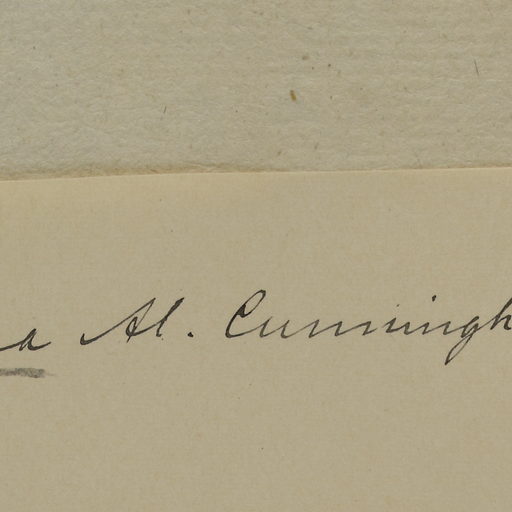 a Al. Cunningh